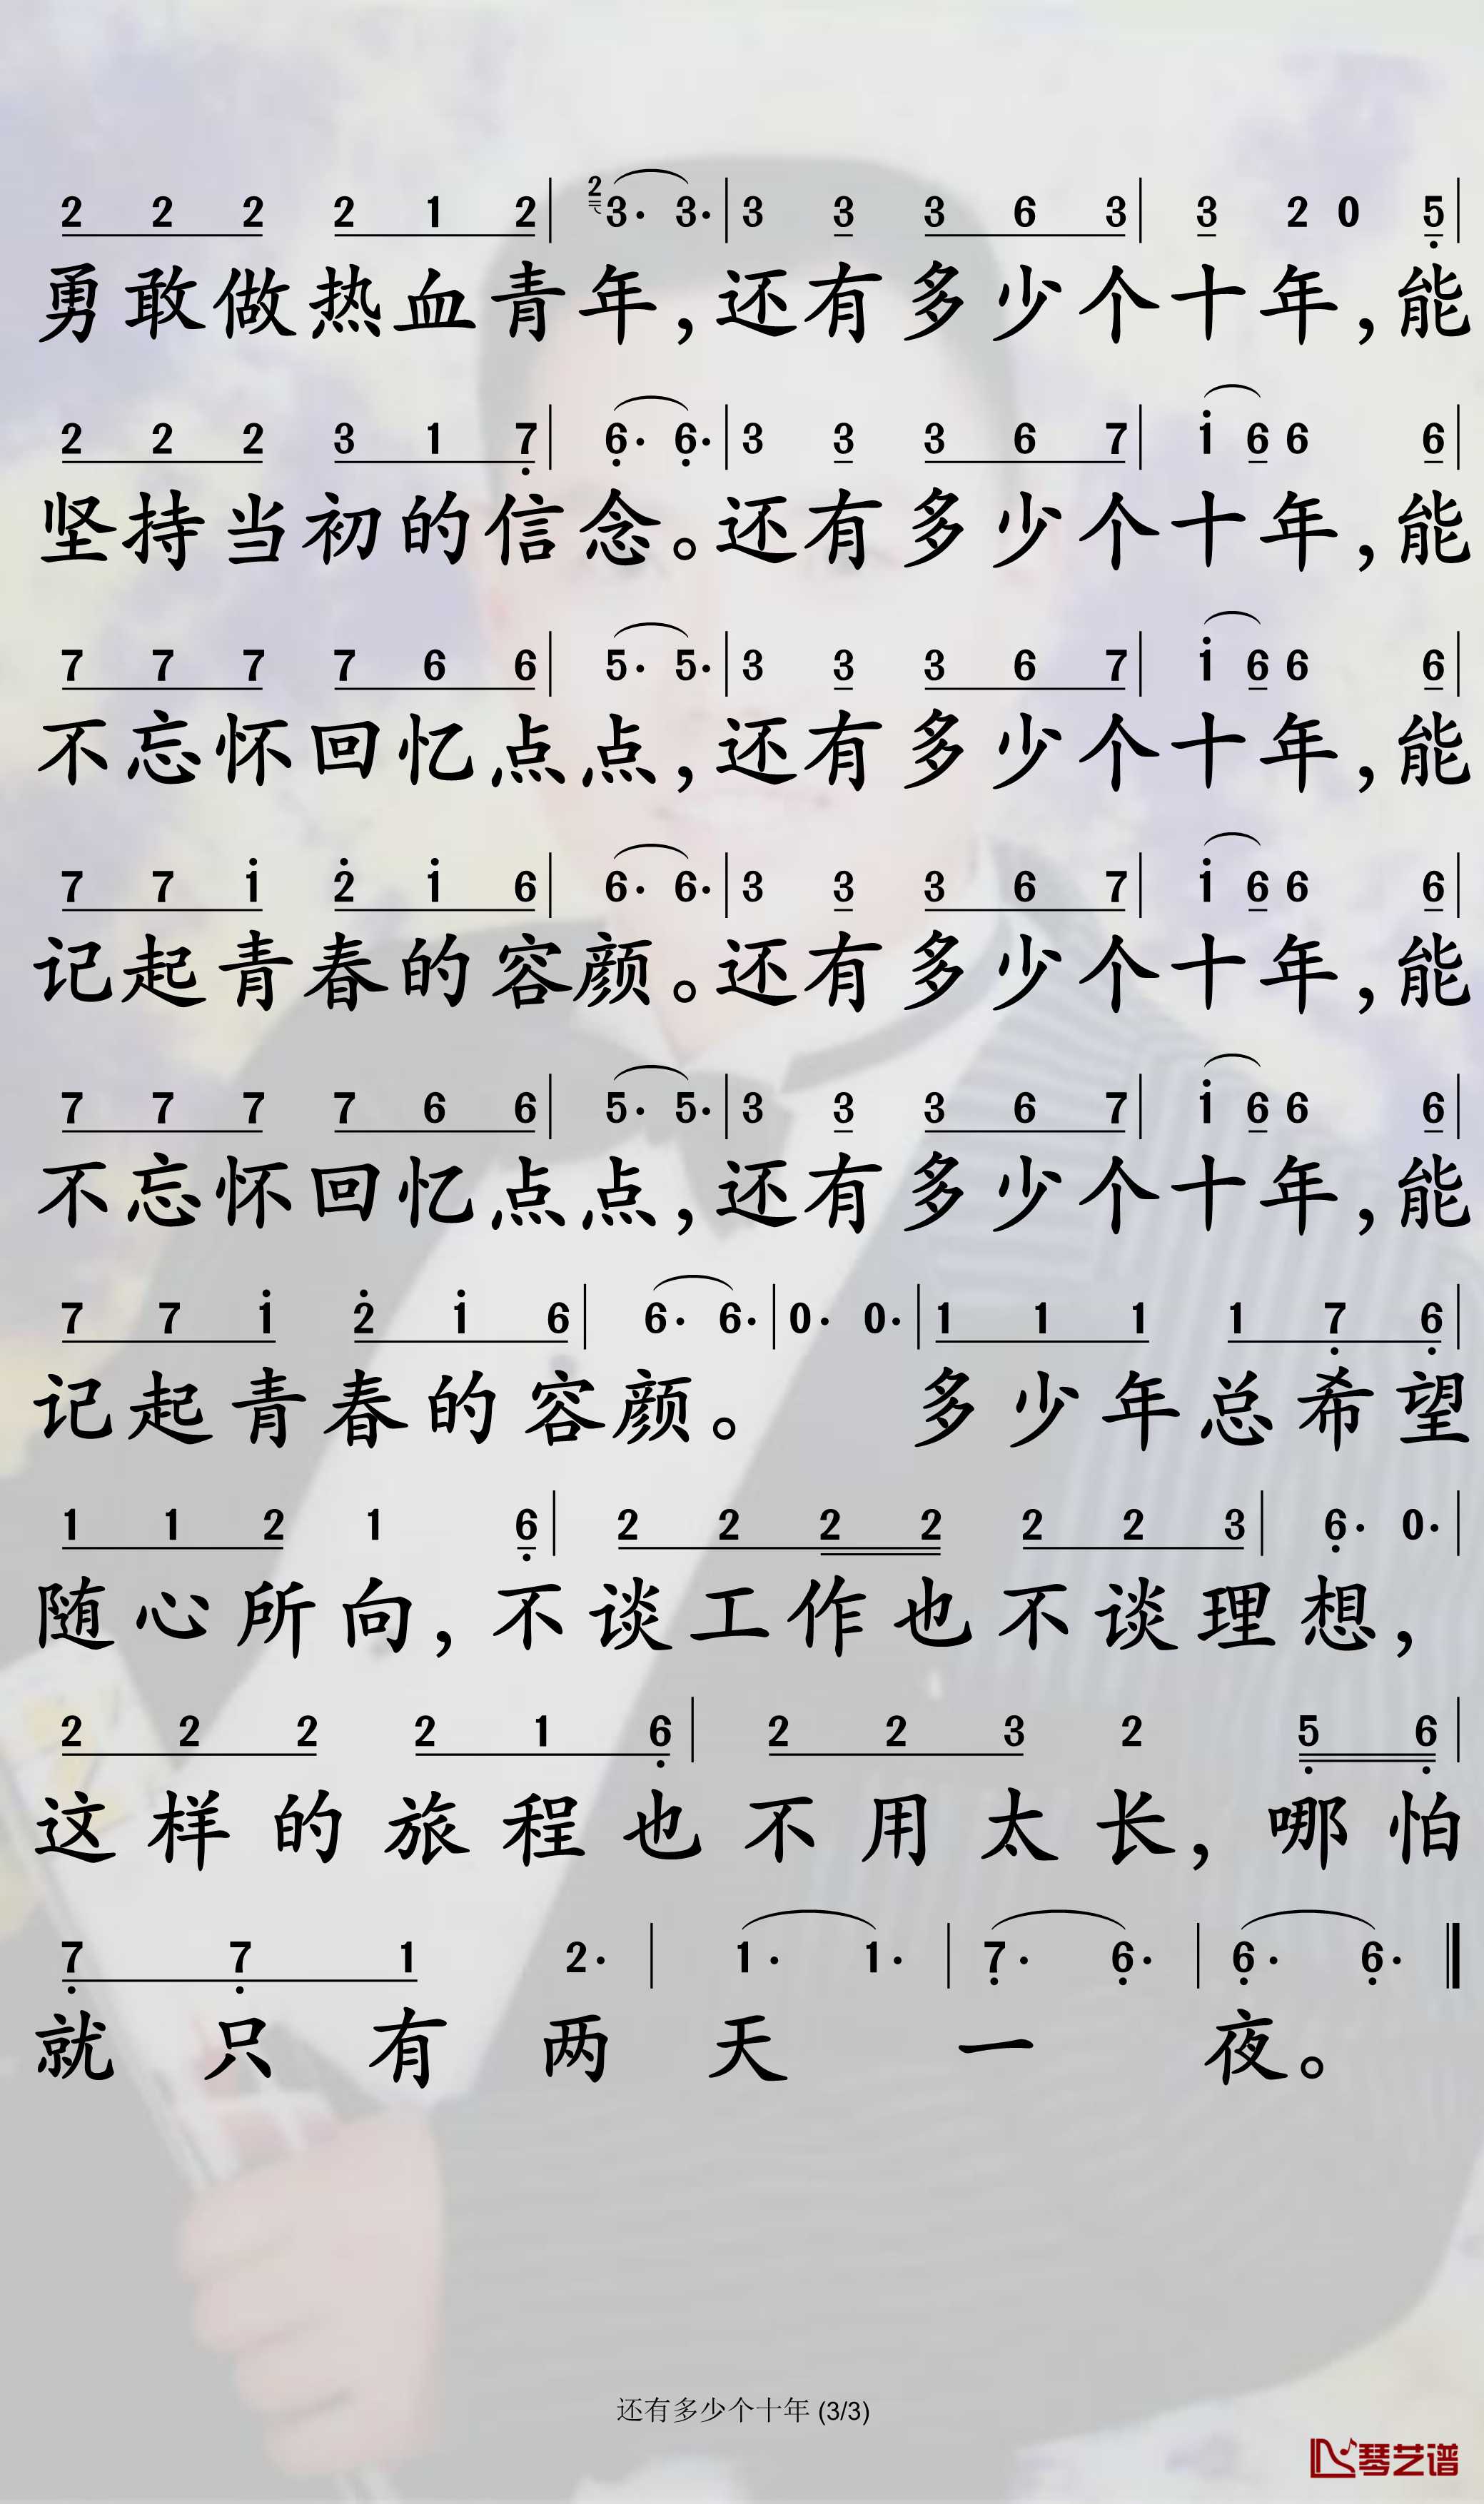 2 2 2 2 1 2 | 2 3· 3· | 3 3 3 6 3 | 3 2 0 5̣ |
勇敢做热血青年，还有多少个十年，能
2 2 2 3 1 7̣ | 6̣· 6̣· | 3 3 3 6 7 | 1̇ 6 6 6 |
坚持当初的信念。还有多少个十年，能
7 7 7 7 6 6 | 5· 5· | 3 3 3 6 7 | 1̇ 6 6 6 |
不忘怀回忆点点，还有多少个十年，能
7 7 1̇ 2̇ 1̇ 6 | 6· 6· | 3 3 3 6 7 | 1̇ 6 6 6 |
记起青春的容颜。还有多少个十年，能
7 7 7 7 6 6 | 5· 5· | 3 3 3 6 7 | 1̇ 6 6 6 |
不忘怀回忆点点，还有多少个十年，能
7 7 1̇ 2̇ 1̇ 6 | 6· 6· | 0· 0· | 1 1 1 1 7̣ 6̣ |
记起青春的容颜。 多少年总希望
1 1 2 1 6̣ | 2 2 2 2 2 2 3 | 6̣· 0· |
随心所向，不谈工作也不谈理想，
2 2 2 2 1 6̣ | 2 2 3 2 5̣ 6̣ |
这样的旅程也不用太长，哪怕
7̣ 7̣ 1 2· | 1· 1· | 7̣· 6̣· | 6̣· 6̣· ‖
就只有两天一夜。
还有多少个十年 (3/3)
琴艺谱